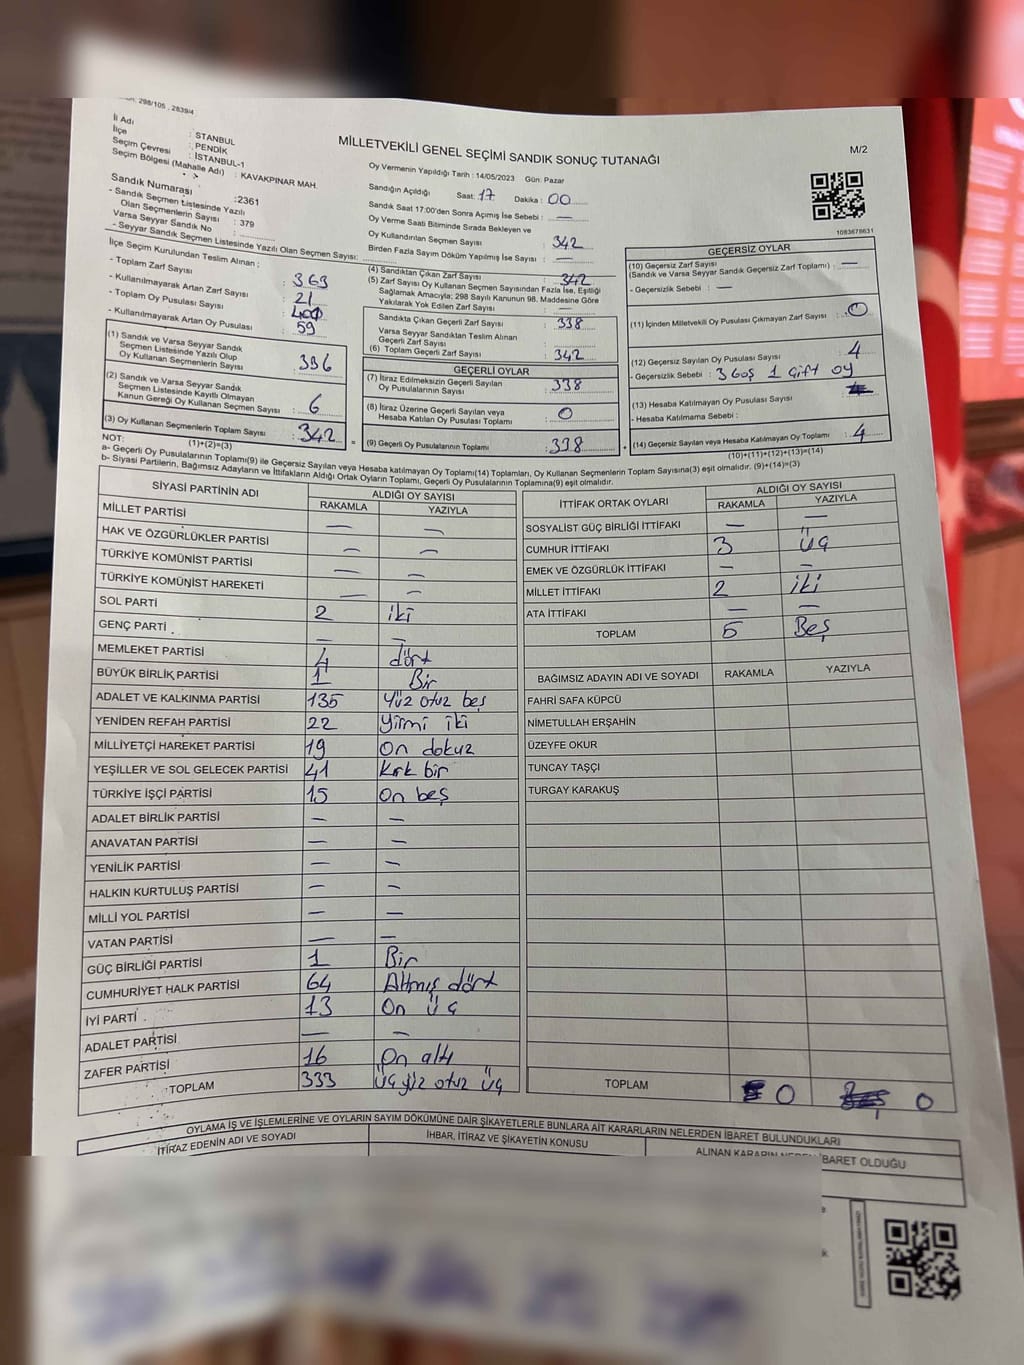 298/105 . 2839/4
İl Adı : STANBUL
İlçe : PENDİK
Seçim Çevresi : İSTANBUL-1
Seçim Bölgesi (Mahalle Adı) : KAVAKPINAR MAH.
Sandık Numarası :2361
- Sandık Seçmen Listesinde Yazılı
Olan Seçmenlerin Sayısı : 379
Varsa Seyyar Sandık No :
- Seyyar Sandık Seçmen Listesinde Yazılı Olan Seçmen Sayısı:
MİLLETVEKİLİ GENEL SEÇİMİ SANDIK SONUÇ TUTANAĞI
M/2
Oy Vermenin Yapıldığı Tarih : 14/05/2023 Gün: Pazar
Sandığın Açıldığı Saat: 17 Dakika : 00
Sandık Saat 17:00'den Sonra Açımış İse Sebebi : —
Oy Verme Saati Bitiminde Sırada Bekleyen ve
Oy Kullandırılan Seçmen Sayısı : 342
Birden Fazla Sayım Döküm Yapılmış İse Sayısı : —
1083678631
İlçe Seçim Kurulundan Teslim Alınan ;
- Toplam Zarf Sayısı : 363
- Kullanılmayarak Artan Zarf Sayısı : 21
- Toplam Oy Pusulası Sayısı : 400
- Kullanılmayarak Artan Oy Pusulası : 59
(1) Sandık ve Varsa Seyyar Sandık
Seçmen Listesinde Yazılı Olup
Oy Kullanan Seçmenlerin Sayısı : 336
(2) Sandık ve Varsa Seyyar Sandık
Seçmen Listesinde Kayıtlı Olmayan
Kanun Gereği Oy Kullanan Seçmen Sayısı : 6
(3) Oy Kullanan Seçmenlerin Toplam Sayısı : 342 =
(1)+(2)=(3)
(4) Sandıktan Çıkan Zarf Sayısı : 342
(5) Zarf Sayısı Oy Kullanan Seçmen Sayısından Fazla İse, Eşitliği
Sağlamak Amacıyla; 298 Sayılı Kanunun 98. Maddesine Göre
Yakılarak Yok Edilen Zarf Sayısı : —
Sandıkta Çıkan Geçerli Zarf Sayısı : 338
Varsa Seyyar Sandıktan Teslim Alınan
Geçerli Zarf Sayısı :
(6) Toplam Geçerli Zarf Sayısı : 342
GEÇERLİ OYLAR
(7) İtiraz Edilmeksizin Geçerli Sayılan
Oy Pusulalarının Sayısı : 338
(8) İtiraz Üzerine Geçerli Sayılan veya
Hesaba Katılan Oy Pusulası Toplamı : 0
(9) Geçerli Oy Pusulalarının Toplamı : 338 +
GEÇERSİZ OYLAR
(10) Geçersiz Zarf Sayısı
(Sandık ve Varsa Seyyar Sandık Geçersiz Zarf Toplamı) : —
- Geçersizlik Sebebi : —
(11) İçinden Milletvekili Oy Pusulası Çıkmayan Zarf Sayısı : 0
(12) Geçersiz Sayılan Oy Pusulası Sayısı : 4
- Geçersizlik Sebebi : 3 Boş 1 çift oy
(13) Hesaba Katılmayan Oy Pusulası Sayısı :
- Hesaba Katılmama Sebebi :
(14) Geçersiz Sayılan veya Hesaba Katılmayan Oy Toplamı : 4
(10)+(11)+(12)+(13)=(14)
NOT:
a- Geçerli Oy Pusulalarının Toplamı(9) ile Geçersiz Sayılan veya Hesaba katılmayan Oy Toplamı(14) Toplamları, Oy Kullanan Seçmenlerin Toplam Sayısına(3) eşit olmalıdır. (9)+(14)=(3)
b- Siyasi Partilerin, Bağımsız Adayların ve İttifakların Aldığı Ortak Oyların Toplamı, Geçerli Oy Pusulalarının Toplamına(9) eşit olmalıdır.
SİYASİ PARTİNİN ADI ALDIĞI OY SAYISI
RAKAMLA YAZIYLA
MİLLET PARTİSİ — —
HAK VE ÖZGÜRLÜKLER PARTİSİ — —
TÜRKİYE KOMÜNİST PARTİSİ — —
TÜRKİYE KOMÜNİST HAREKETİ — —
SOL PARTİ 2 iki
GENÇ PARTİ — —
MEMLEKET PARTİSİ 4 dört
BÜYÜK BİRLİK PARTİSİ 1 Bir
ADALET VE KALKINMA PARTİSİ 135 Yüz otuz beş
YENİDEN REFAH PARTİSİ 22 yirmi iki
MİLLİYETÇİ HAREKET PARTİSİ 19 On dokuz
YEŞİLLER VE SOL GELECEK PARTİSİ 41 Kırk bir
TÜRKİYE İŞÇİ PARTİSİ 15 On beş
ADALET BİRLİK PARTİSİ — —
ANAVATAN PARTİSİ — —
YENİLİK PARTİSİ — —
HALKIN KURTULUŞ PARTİSİ — —
MİLLİ YOL PARTİSİ — —
VATAN PARTİSİ — —
GÜÇ BİRLİĞİ PARTİSİ 1 Bir
CUMHURİYET HALK PARTİSİ 64 Altmış dört
İYİ PARTİ 13 On üç
ADALET PARTİSİ — —
ZAFER PARTİSİ 16 On altı
TOPLAM 333 üçyüz otuz üç
İTTİFAK ORTAK OYLARI ALDIĞI OY SAYISI
RAKAMLA YAZIYLA
SOSYALİST GÜÇ BİRLİĞİ İTTİFAKI — —
CUMHUR İTTİFAKI 3 üç
EMEK VE ÖZGÜRLÜK İTTİFAKI — —
MİLLET İTTİFAKI 2 iki
ATA İTTİFAKI — —
TOPLAM 5 Beş
BAĞIMSIZ ADAYIN ADI VE SOYADI RAKAMLA YAZIYLA
FAHRİ SAFA KÜPCÜ
NİMETULLAH ERŞAHİN
ÜZEYFE OKUR
TUNCAY TAŞÇI
TURGAY KARAKUŞ
TOPLAM 0 0
OYLAMA İŞ VE İŞLEMLERİNE VE OYLARIN SAYIM DÖKÜMÜNE DAİR ŞİKAYETLERLE BUNLARA AİT KARARLARIN NELERDEN İBARET BULUNDUKLARI
İTİRAZ EDENİN ADI VE SOYADI İHBAR, İTİRAZ VE ŞİKAYETİN KONUSU ALINAN KARARIN NEDEN İBARET OLDUĞU